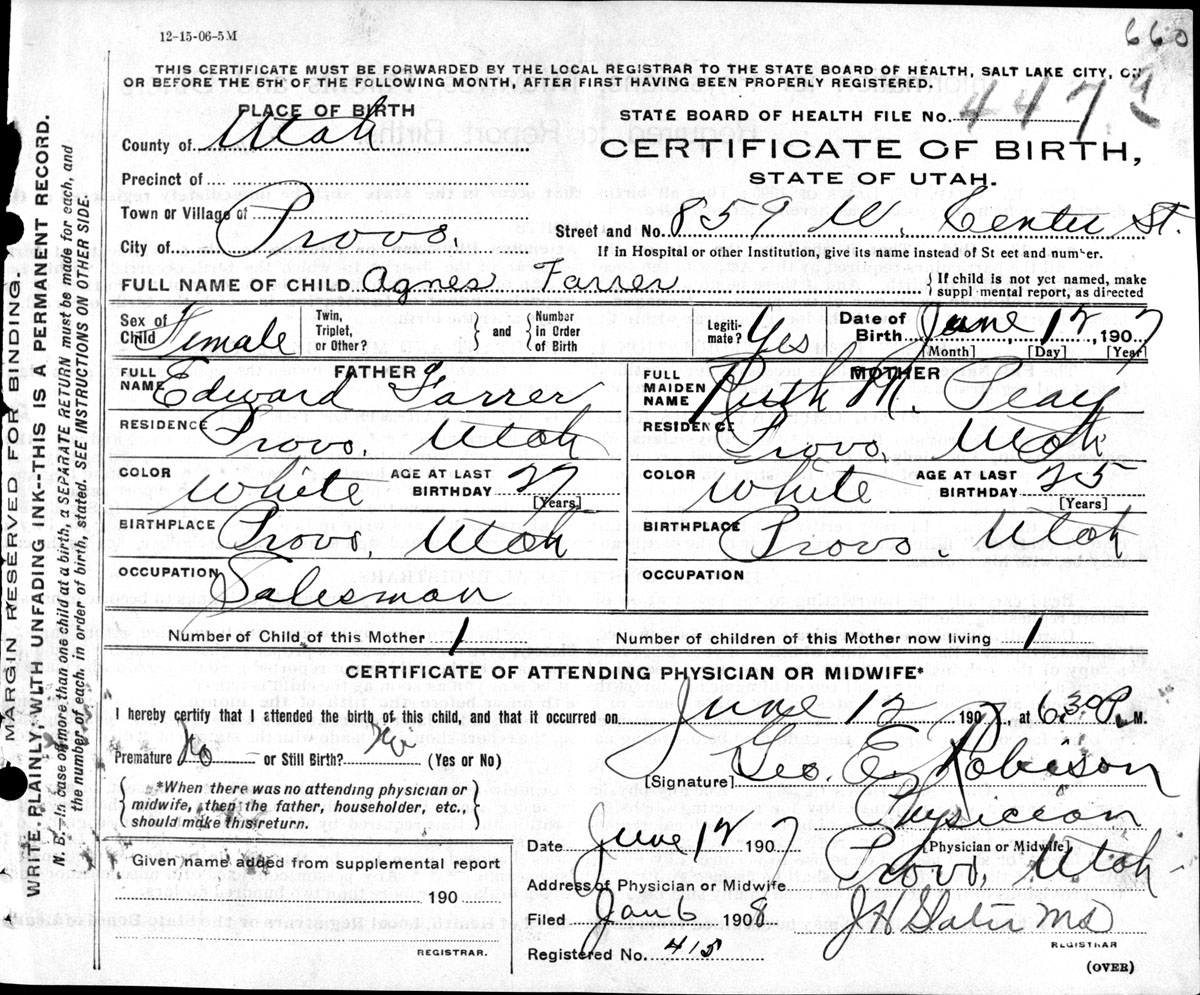 660
12-15-06-5M
THIS CERTIFICATE MUST BE FORWARDED BY THE LOCAL REGISTRAR TO THE STATE BOARD OF HEALTH, SALT LAKE CITY, ON
OR BEFORE THE 5TH OF THE FOLLOWING MONTH, AFTER FIRST HAVING BEEN PROPERLY REGISTERED.
PLACE OF BIRTH
County of Utah
Precinct of
Town or Village of
City of Provo.
STATE BOARD OF HEALTH FILE No. 4479
CERTIFICATE OF BIRTH,
STATE OF UTAH.
Street and No. 859 W. Center St.
If in Hospital or other Institution, give its name instead of St eet and number.
FULL NAME OF CHILD Agnes Farrer { If child is not yet named, make suppl mental report, as directed
Sex of Child Female Twin, Triplet, or Other? } and { Number in Order of Birth Legiti- mate? Yes Date of Birth June 12, 1907
[Month] [Day] [Year]
FATHER
FULL NAME Edward Farrer
RESIDENCE Provo, Utah
COLOR White AGE AT LAST BIRTHDAY 27
[Years]
BIRTHPLACE Provo, Utah
OCCUPATION Salesman
MOTHER
FULL MAIDEN NAME Ruth M. Peay
RESIDENCE Provo, Utah
COLOR White AGE AT LAST BIRTHDAY 25
[Years]
BIRTHPLACE Provo, Utah
OCCUPATION
Number of Child of this Mother 1 Number of children of this Mother now living 1
CERTIFICATE OF ATTENDING PHYSICIAN OR MIDWIFE*
I hereby certify that I attended the birth of this child, and that it occurred on June 12 1907, at 6:30 P. M.
Premature No or Still Birth? No (Yes or No)
{ *When there was no attending physician or
midwife, then the father, householder, etc.,
should make this return. }
[Signature] Geo. E. Robison
Physician
[Physician or Midwife]
Date June 12 1907
Address of Physician or Midwife Provo, Utah
Filed Jan 6 1908
REGISTRAR
Registered No. 415
(OVER)
Given name added from supplemental report
190
REGISTRAR.
MARGIN RESERVED FOR BINDING.
WRITE PLAINLY, WITH UNFADING INK---THIS IS A PERMANENT RECORD.
N. B.--In case of more than one child at a birth, a SEPARATE RETURN must be made for each, and
the number of each, in order of birth, stated. SEE INSTRUCTIONS ON OTHER SIDE.